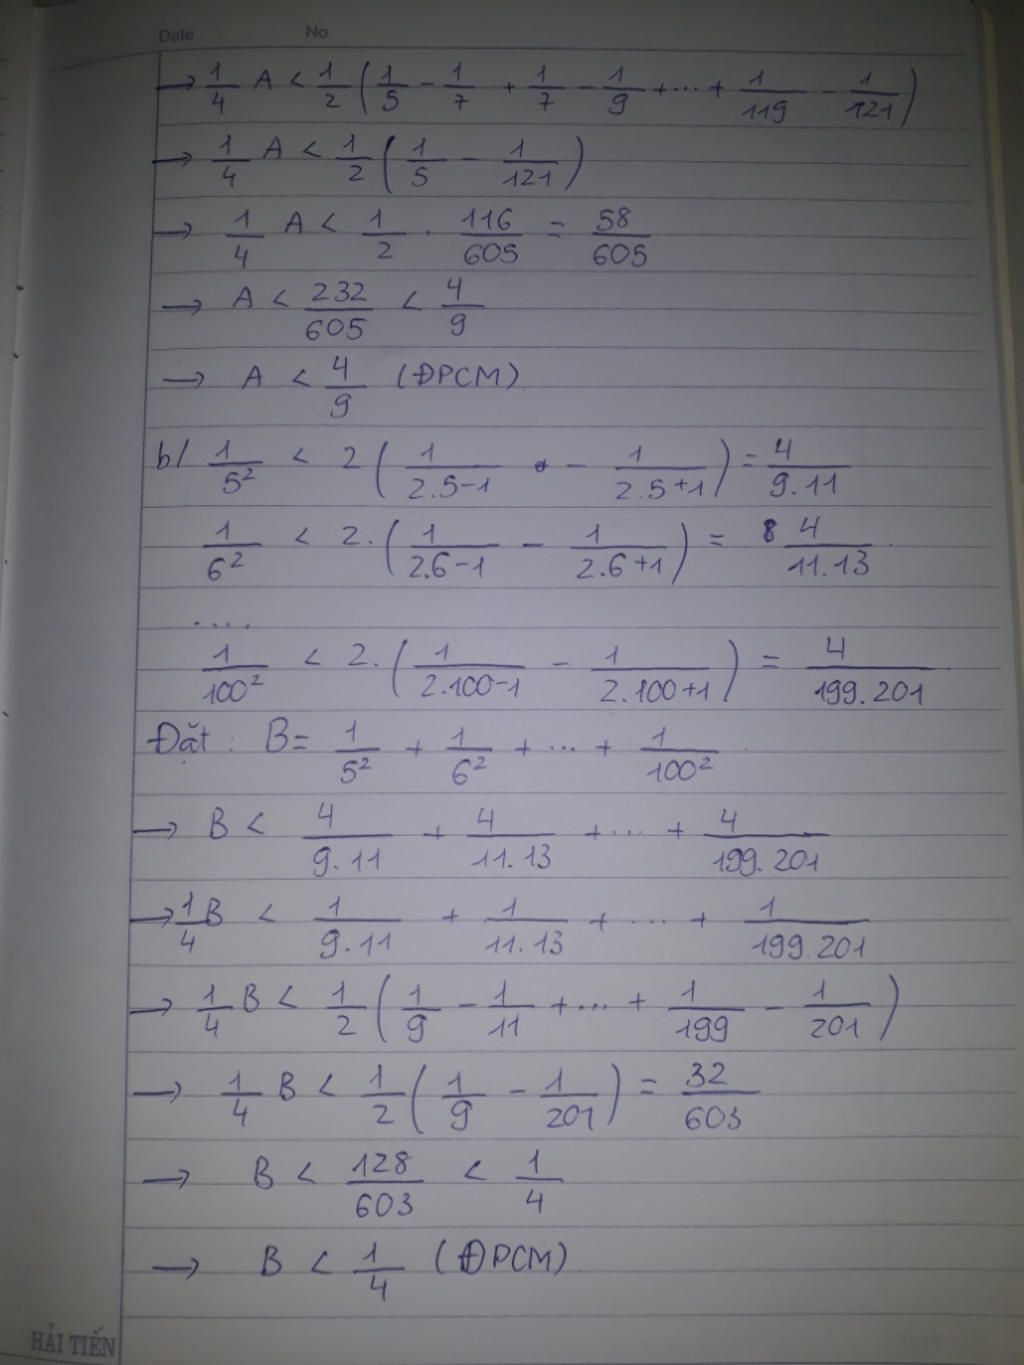 Date . . . No.
→ 1/4 A < 1/2 (1/5 - 1/7 + 1/7 - 1/9 + ... + 1/119 - 1/121)
→ 1/4 A < 1/2 (1/5 - 1/121)
→ 1/4 A < 1/2 . 116/605 = 58/605
→ A < 232/605 < 4/9
→ A < 4/9 (ĐPCM)
b/ 1/5² < 2 (1/2.5-1 - 1/2.5+1) = 4/9.11
1/6² < 2. (1/2.6-1 - 1/2.6+1) = 8 4/11.13
....
1/100² < 2. (1/2.100-1 - 1/2.100+1) = 4/199.201
Đặt : B = 1/5² + 1/6² + ... + 1/100²
→ B < 4/9.11 + 4/11.13 + ... + 4/199.201
→ 1/4 B < 1/9.11 + 1/11.13 + ... + 1/199.201
→ 1/4 B < 1/2 (1/9 - 1/11 + ... + 1/199 - 1/201)
→ 1/4 B < 1/2 (1/9 - 1/201) = 32/603
→ B < 128/603 < 1/4
→ B < 1/4 (ĐPCM)
HẢI TIẾN